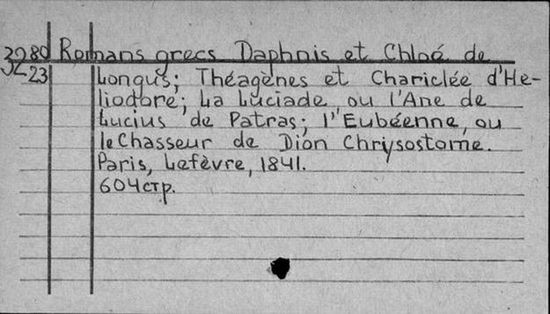 3280 Romans grecs Daphnis et Chloé de
32 23 Longus; Théagènes et Chariclée d'He-
liodore; La Luciade ou l'Ane de
Lucius de Patras; l'Eubéenne, ou
le Chasseur de Dion Chrysostome.
Paris, Lefèvre, 1841.
604 стр.